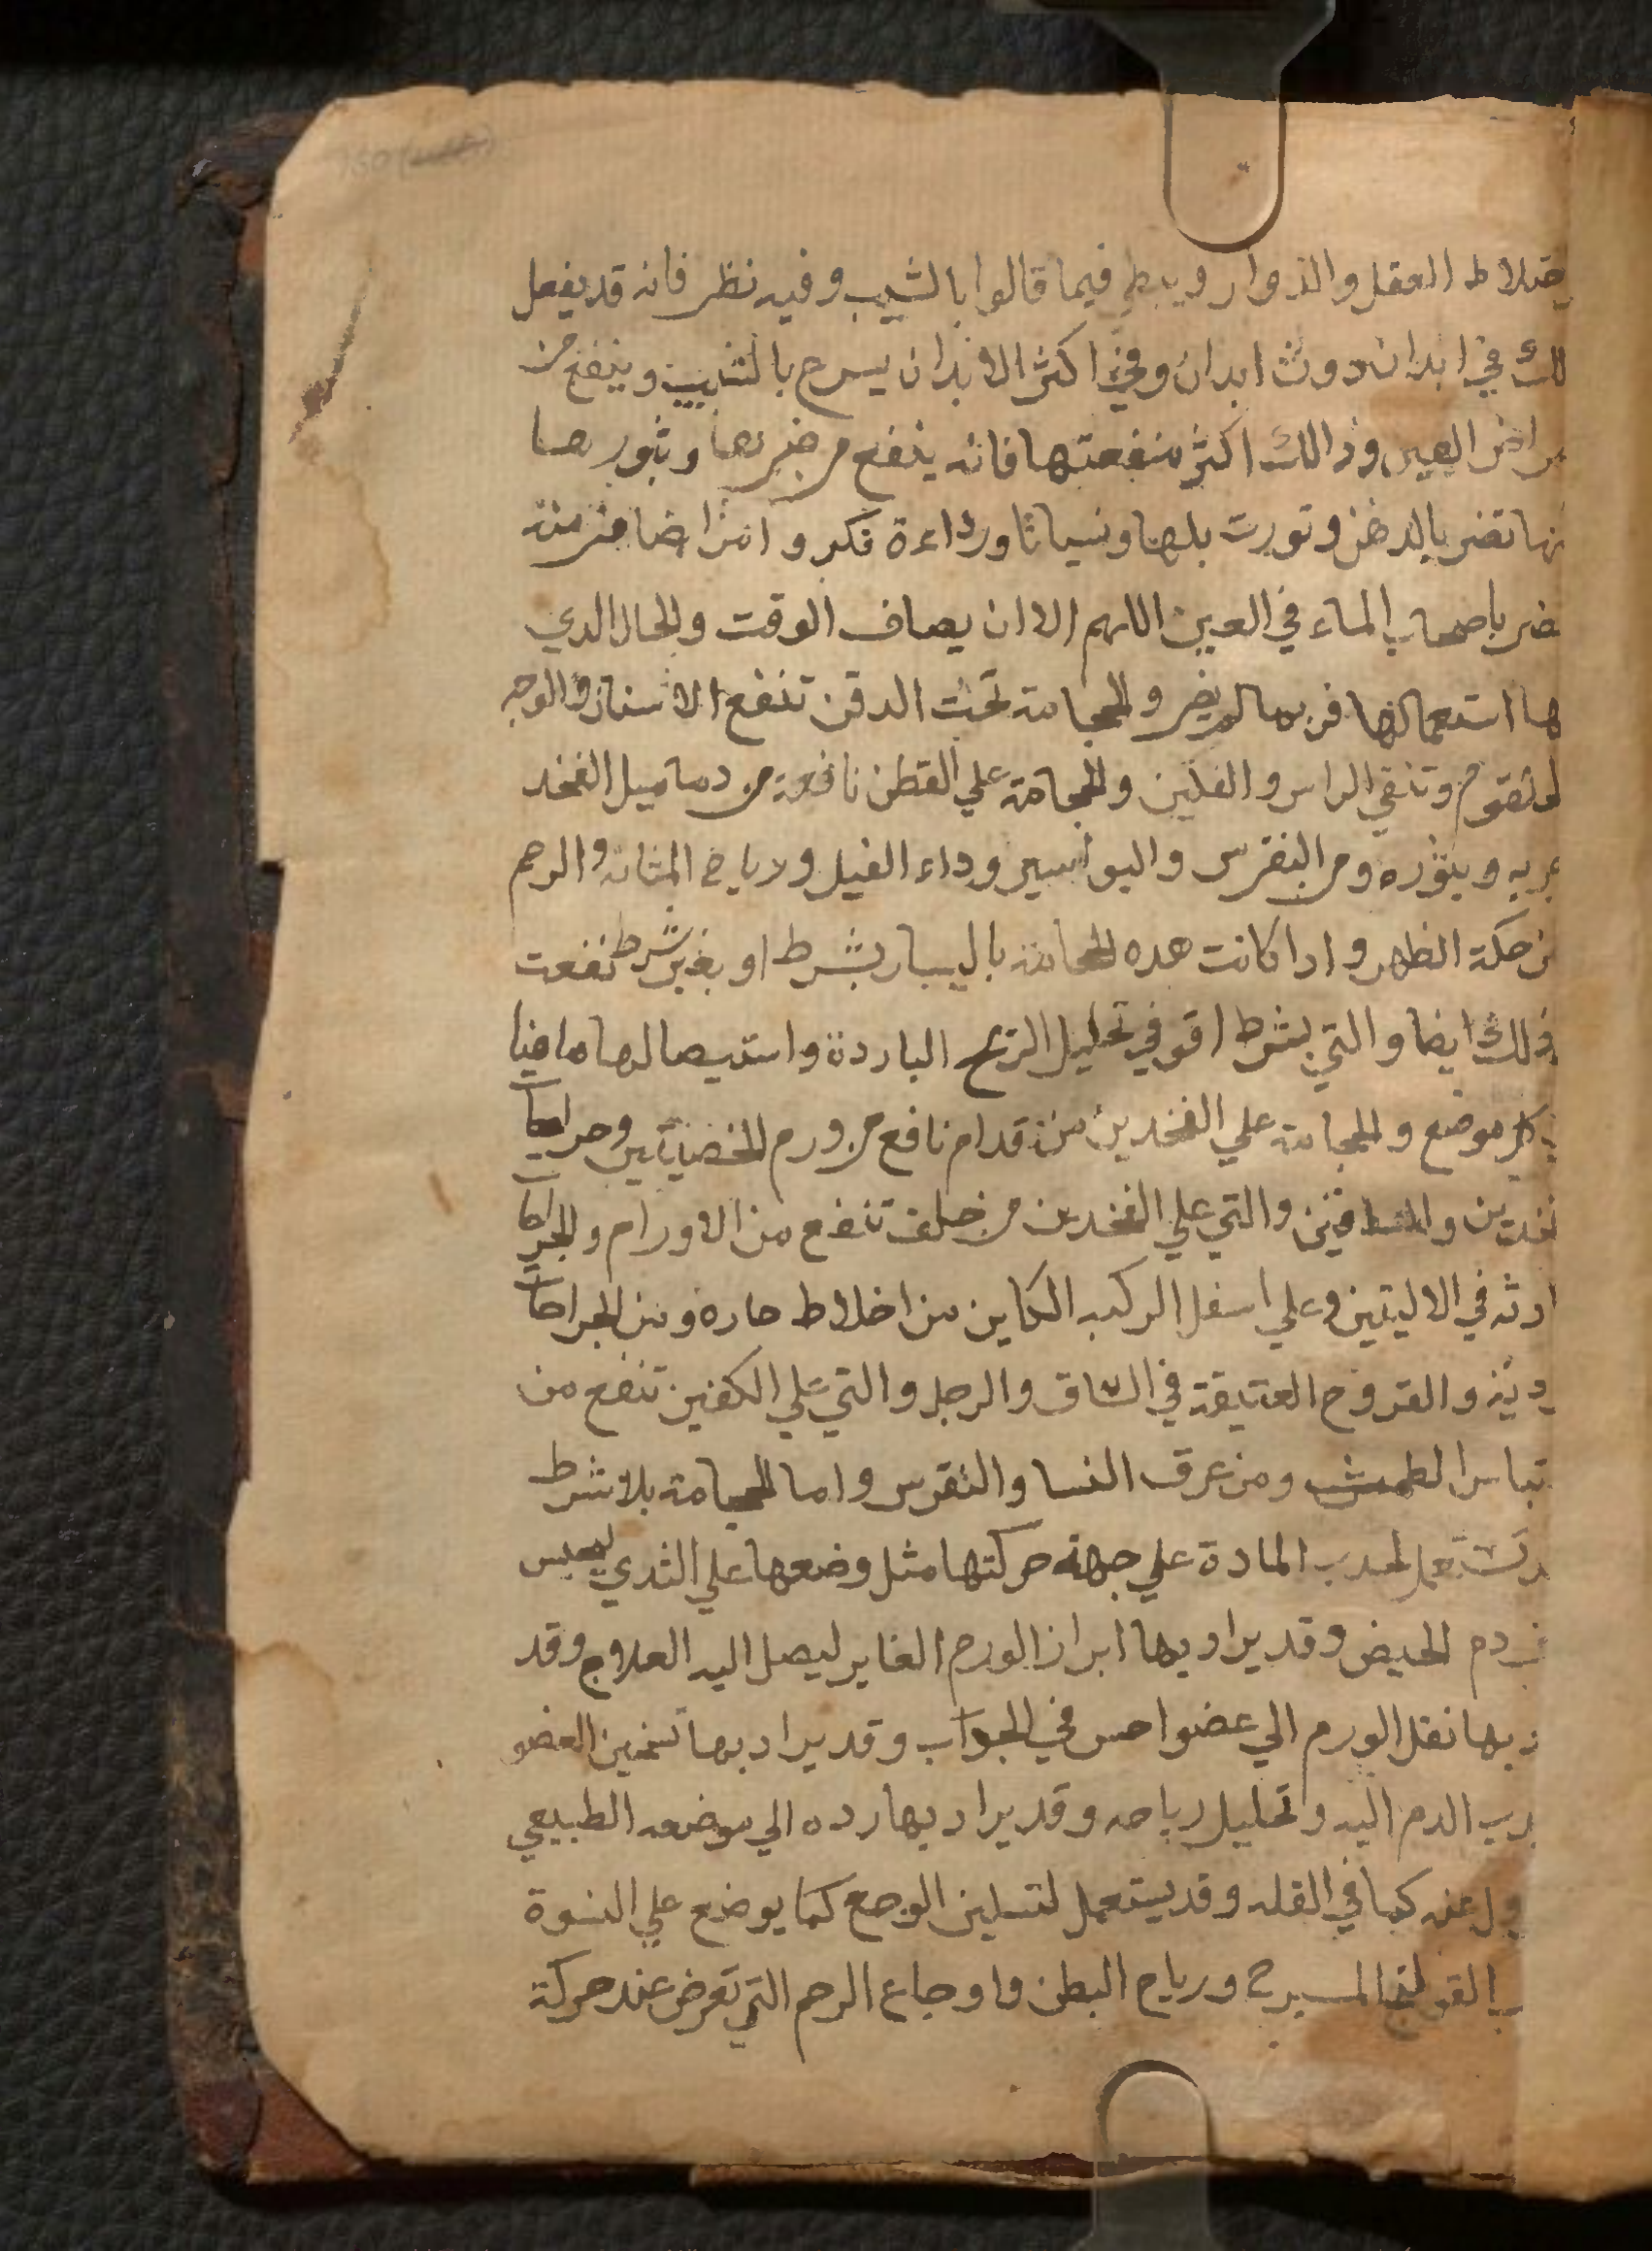 ختلاط العقل والدوار ويبطي فيما قالوا بالشيب وفيه نظر فانه قد يفعل
لك في ابدان دون ابدان وفي اكثر الابدان يسرع بالشيب وينفع من
مراض العين وذالك اكثر منفعتها فانه ينفع من جربها وبثورها
نها تضر بالدهن وتورت بلها ونسيانا ورداءة فكر وامراضا مزمنة
ضر باصحاب الماء في العين اللهم الا ان يصاف الوقت والحال الدي
ها استعمالها فربما لم يضر والحجامة تحت الدقن تنفع الاسنان والوجه
لحلقوم وتنقي الراس والفكين والحجامة علي القطن نافعة من دماميل الفخد
جربه وبثوره ومن النقرس والبواسير وداء الفيل ورياح المثانة والرحم
من حكة الظهر وادا كانت هده الحجامة باليسار بشرط او بغير شرط نفعت
ذلك ايضا والتي بشرط اقو في تحليل الريح الباردة واستيصالها هاهنا
كل موضع والحجامة علي الفخدين من قدام نافع من ورم الخصيتين وخراجات
فخدين والساقين والتي علي الفخدين من خلف تنفع من الاورام والخراجات
ادثه في الاليتين وعلي اسفل الركبه الكاين من اخلاط حاره ومن الجراحات
ديئة والقروح العتيقة في الساق والرجل والتي علي الكفين تنفع من
تباس الطمث ومن عرق النسا والنقرس واما الحجامة بلا شرط
د تستعمل لجدب المادة علي جهة حركتها مثل وضعها علي الثدي ليحبس
ف دم الحيض وقد يراد بها ابراز الورم الغاير ليصل اليه العلاج وقد
د بها نقل الورم الي عضو احس في الجواب وقد يراد بها تسخين العضو
جدب الدم اليه وتحليل رياحه وقد يراد بها رده الي موضعه الطبيعي
ول عنه كما في القله وقد يستعمل لتسكين الوجع كما يوضع علي السرة
ب القولنج المبرح ورياح البطن واوجاع الرحم التي تعرض عند حركة